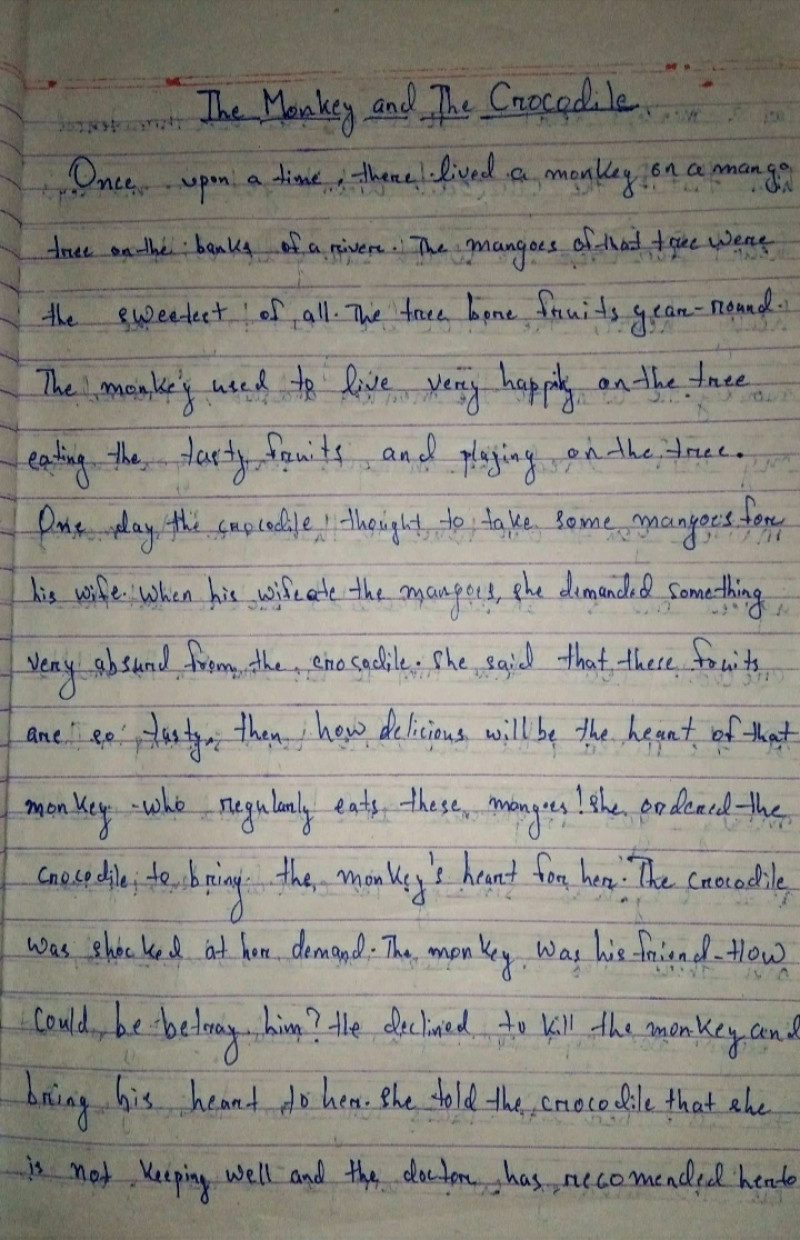 The Monkey and The Crocodile
Once upon a time, there lived a monkey on a mango
tree on the banks of a river. The mangoes of that tree were
the sweetest of all. The tree bore fruits year-round.
The monkey used to live very happily on the tree
eating the tasty fruits and playing on the tree.
One day the crocodile thought to take some mangoes for
his wife. When his wife ate the mangoes, she demanded something
very absurd from the crocadile. She said that these fruits
are so tasty, then how delicious will be the heart of that
monkey who regularly eats these mangoes! She ordered the
Crocodile to bring the monkey's heart for her. The Crocodile
was shocked at her demand. The monkey was his friend-How
could be betray him? He declined to kill the monkey and
bring his heart to her. She told the crocodile that she
is not keeping well and the doctor has recomended her to